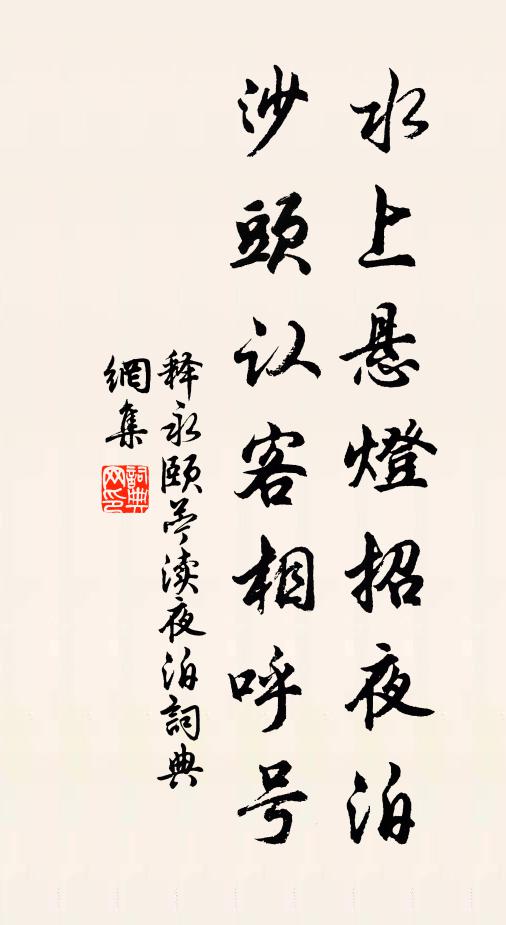 水上悬燈招夜泊
沙頭认客相呼号
释永颐苎渎夜泊詞典
網集
詞典
网印